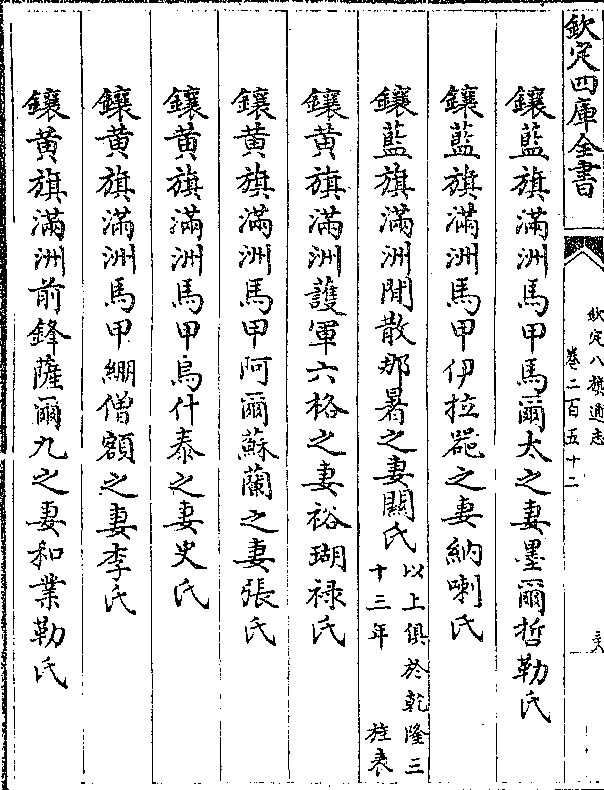 欽定四庫全書
欽定八旗通志
卷二百五十二
鑲藍旗滿洲馬甲馬爾太之妻墨爾哲勒氏
鑲藍旗滿洲馬甲伊拉器之妻納喇氏
鑲藍旗滿洲閒散那暑之妻關氏以上俱於乾隆三
十三年 旌表
鑲黃旗滿洲護軍六格之妻裕瑚祿氏
鑲黃旗滿洲馬甲阿爾蘇蘭之妻張氏
鑲黃旗滿洲馬甲烏什泰之妻史氏
鑲黃旗滿洲馬甲綳僧額之妻李氏
鑲黃旗滿洲前鋒薩爾九之妻和業勒氏